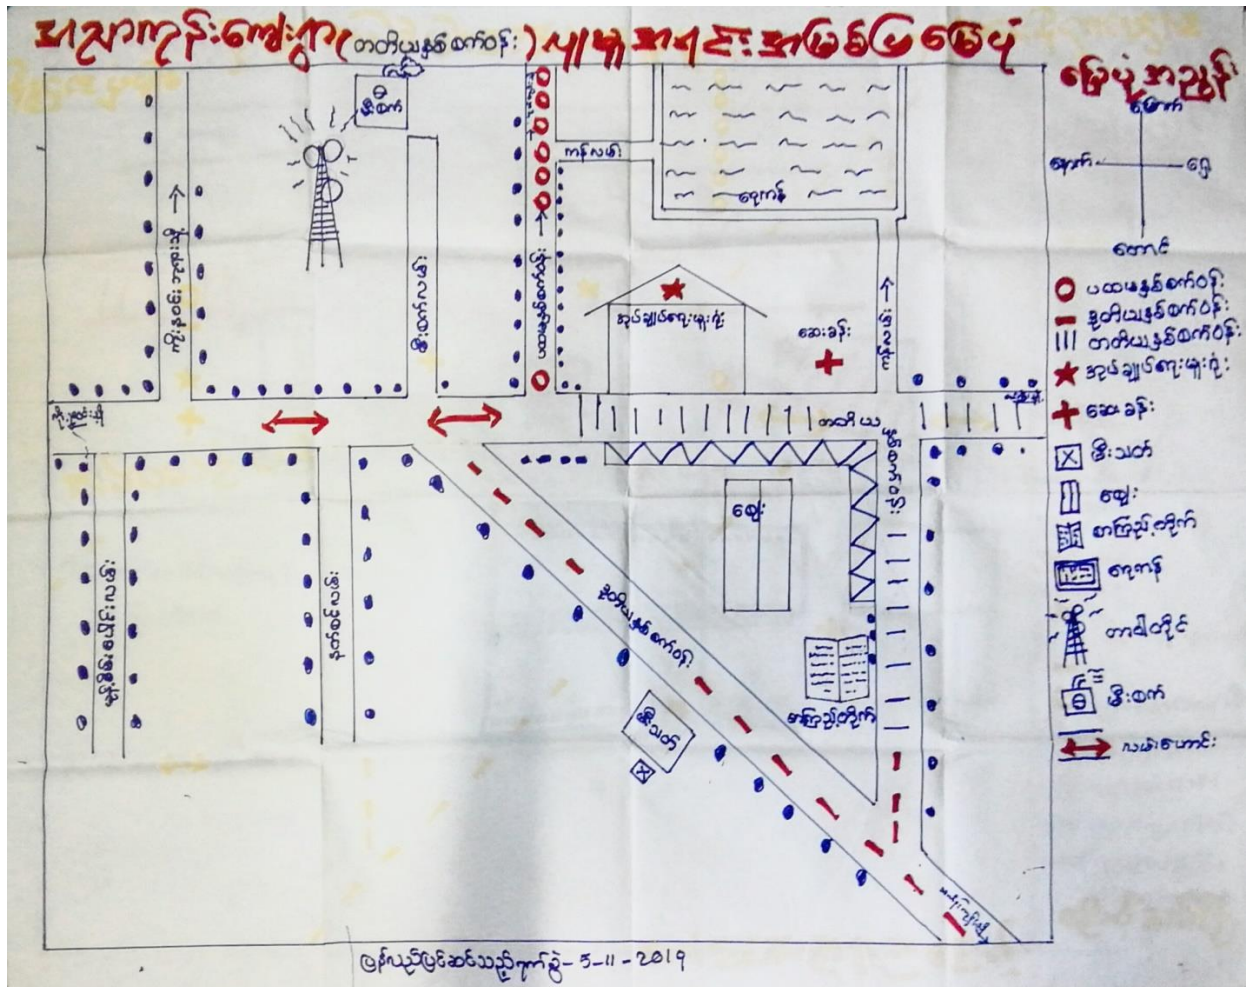 အညာကုန်းကျေးရွာ(တတိယနှစ်စက်ဝန်း)လူမှုအရင်းအမြစ်ပြမြေပုံ
မြေပုံအညွှန်း
မြောက်
နောက်
ရှေ့
တောင်
ပထမနှစ်စက်ဝန်း
ဒုတိယနှစ်စက်ဝန်း
တတိယနှစ်စက်ဝန်း
အုပ်ချုပ်ရေးမှူးရုံး
ဆေးခန်း
မီးသတ်
ဈေး
စာကြည့်တိုက်
ရေကန်
တာဝါတိုင်
မီးစက်
လမ်းဟောင်း
မီးစက်
ကန်လမ်း
ရေကန်
အုပ်ချုပ်ရေးမှူးရုံး
ဆေးခန်း
မီးစက်လမ်း
တတိယ
နှစ်စက်ဝန်း
ဈေး
ဒုတိယနှစ်စက်ဝန်း
စာကြည့်တိုက်
မီးသတ်
ပြန်လည်ပြင်ဆင်သည့်ရက်စွဲ-5-11-2019